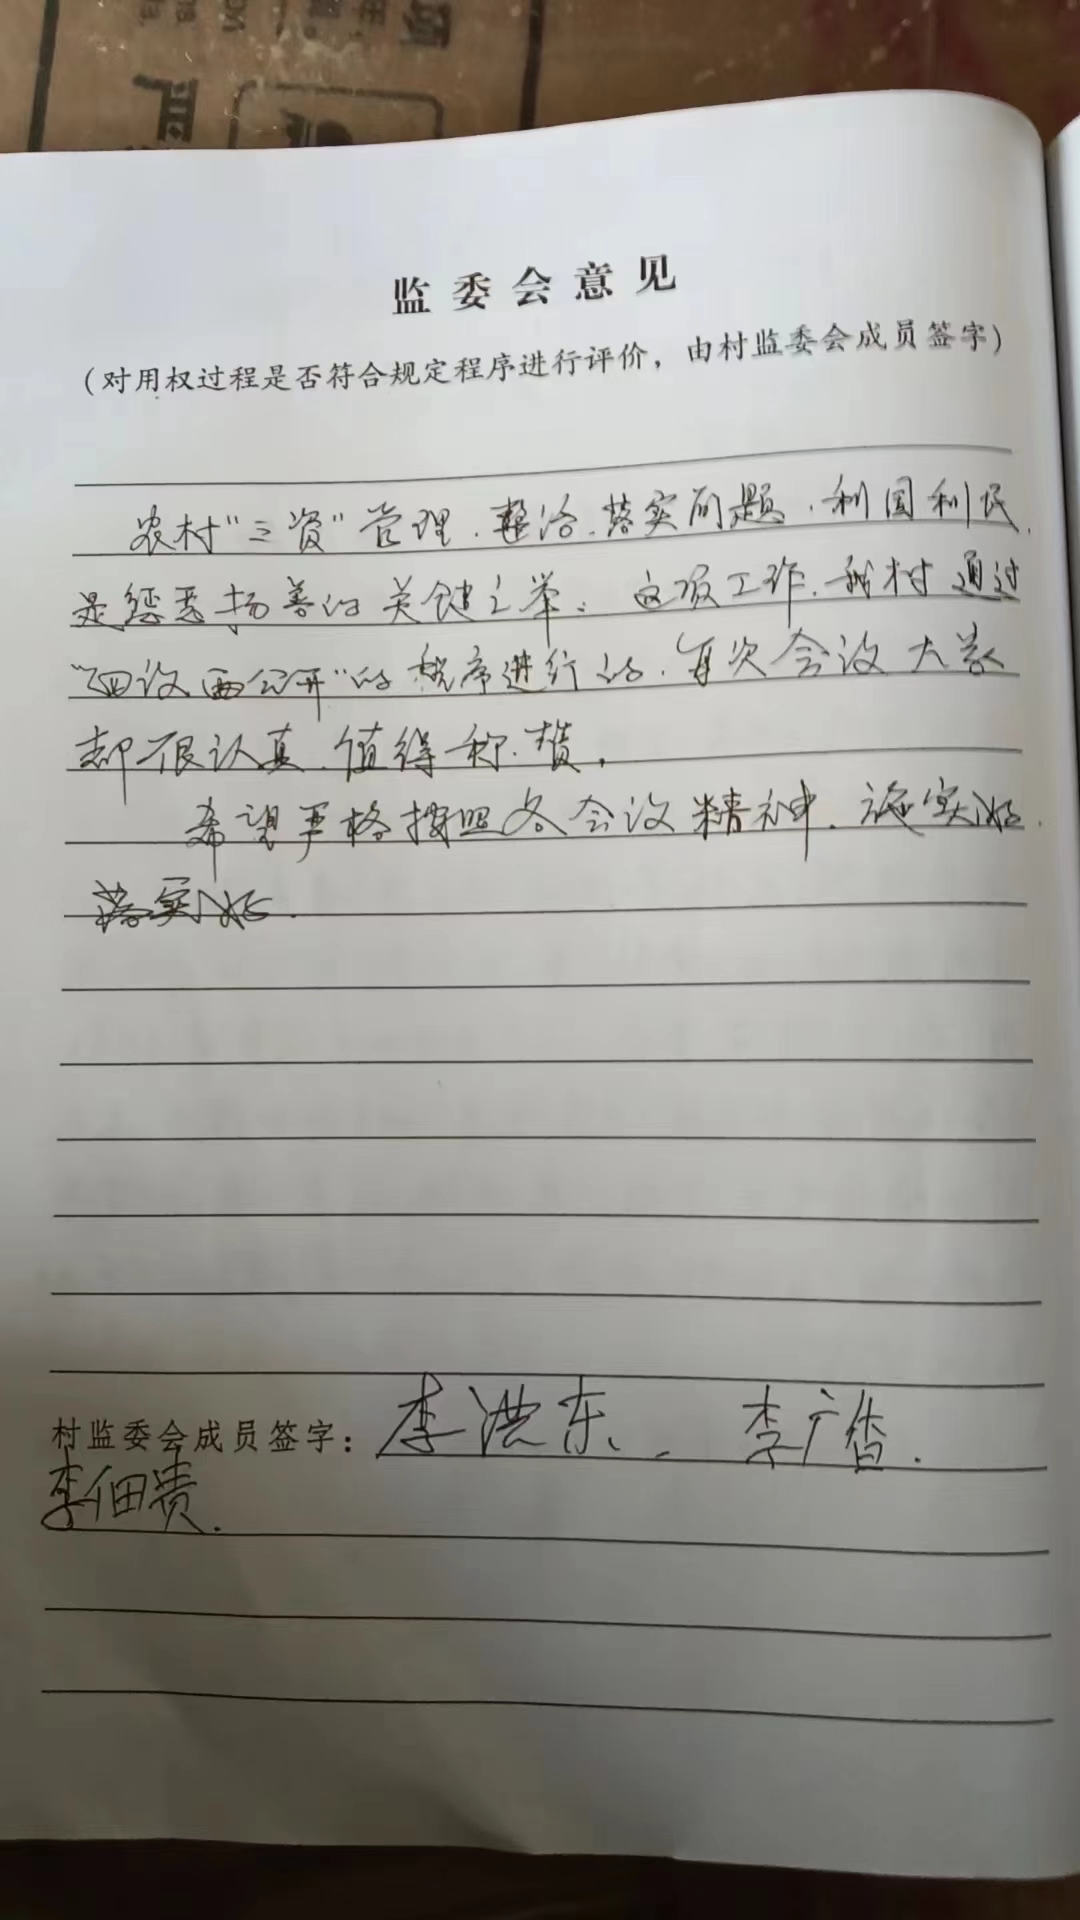 监委会意见
(对用权过程是否符合规定程序进行评价，由村监委会成员签字)
农村"三资"管理、整治、落实问题，利国利民，
是惩恶扬善的关键之举；这项工作，我村通过
"四议两公开"的程序进行的，每次会议大家
都很认真、值得称赞。
希望严格按照各会议精神、施实好、
落实好。
村监委会成员签字：李洪东、李广香、
李佃贵.